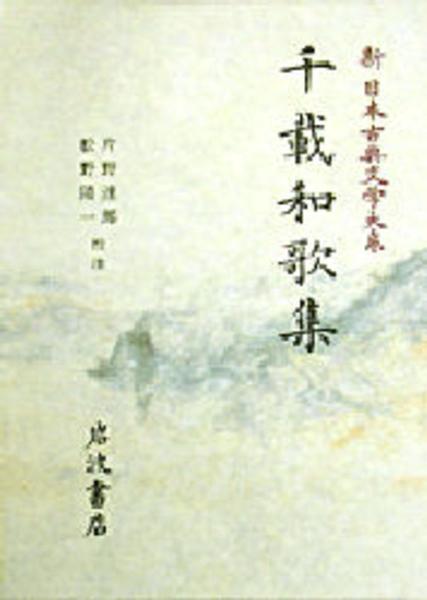 新日本古典文学大系
千載和歌集
片野達郎
松野陽一 校注
岩波書店